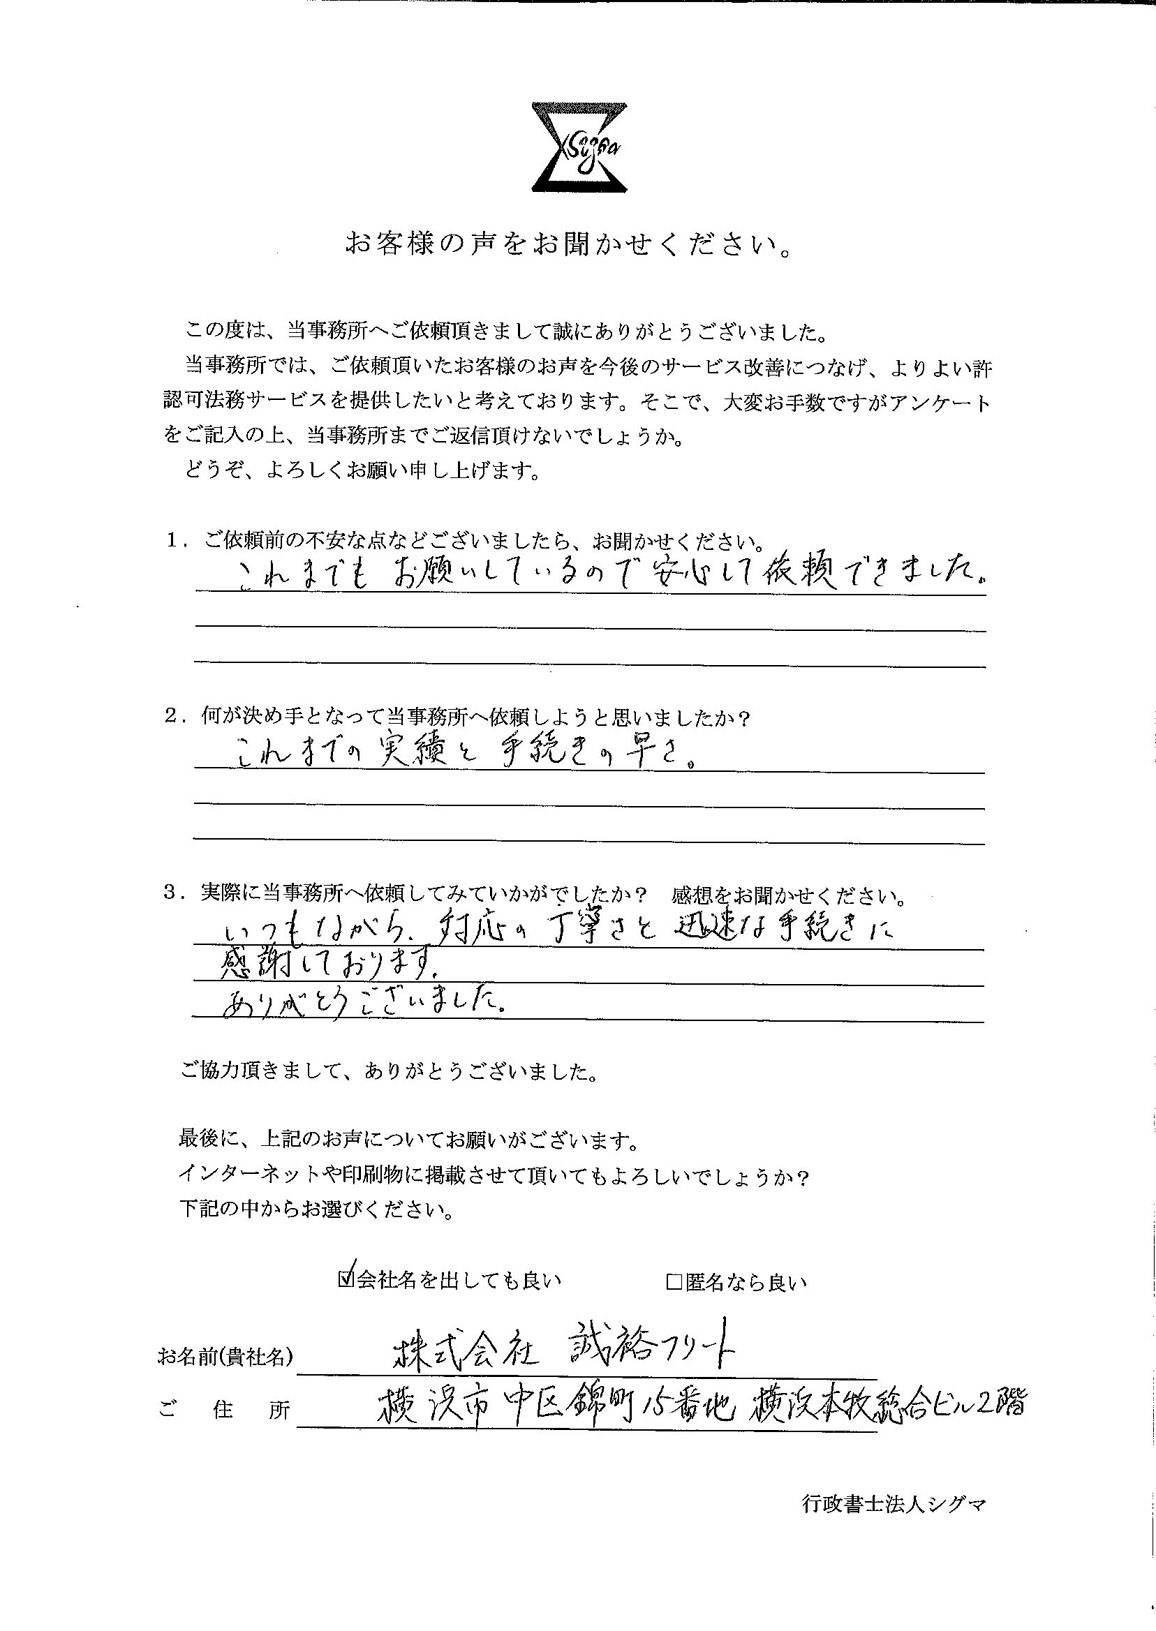 Sigma
お客様の声をお聞かせください。
この度は、当事務所へご依頼頂きまして誠にありがとうございました。
当事務所では、ご依頼頂いたお客様のお声を今後のサービス改善につなげ、よりよい許
認可法務サービスを提供したいと考えております。そこで、大変お手数ですがアンケート
をご記入の上、当事務所までご返信頂けないでしょうか。
どうぞ、よろしくお願い申し上げます。
1．ご依頼前の不安な点などございましたら、お聞かせください。
これまでも お願いしているので安心して依頼できました。
2．何が決め手となって当事務所へ依頼しようと思いましたか？
これまでの実績と手続きの早さ。
3．実際に当事務所へ依頼してみていかがでしたか？　感想をお聞かせください。
いつもながら、対応の丁寧さと迅速な手続きに
感謝しております。
ありがとうございました。
ご協力頂きまして、ありがとうございました。
最後に、上記のお声についてお願いがございます。
インターネットや印刷物に掲載させて頂いてもよろしいでしょうか？
下記の中からお選びください。
☑会社名を出しても良い　□匿名なら良い
お名前(貴社名) 株式会社 誠裕フリート
ご住所 横浜市中区錦町15番地 横浜本牧総合ビル2階
行政書士法人シグマ